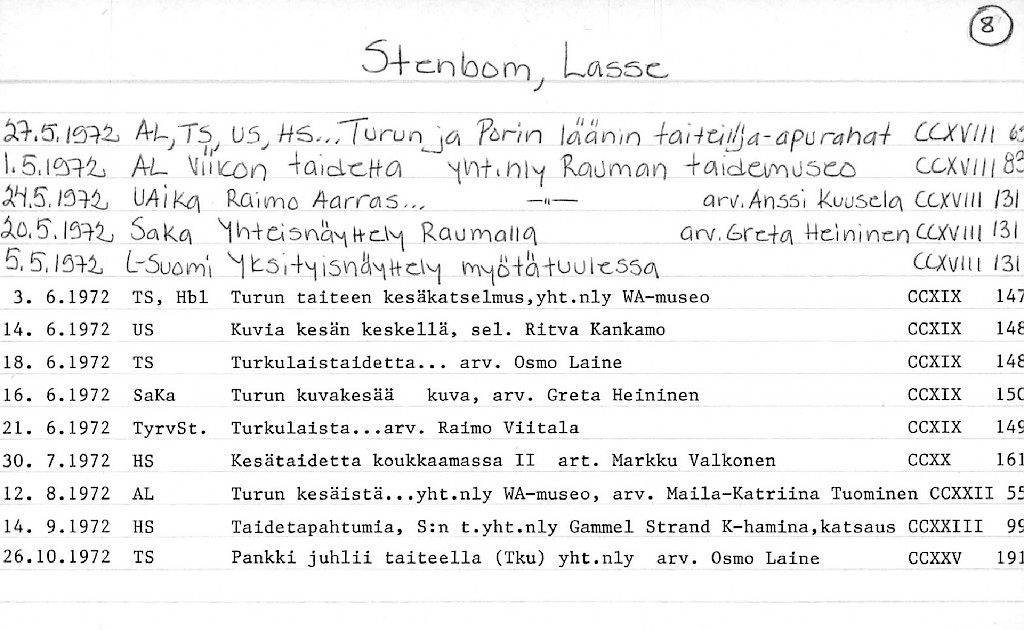 8
Stenbom, Lasse
27.5.1972 AL, TS, US, HS... Turun ja Porin läänin taiteilija-apurahat CCXVIII
1.5.1972 AL Viikon taidetta yht.nly Rauman taidemuseo CCXVIII 83
24.5.1972 UAika Raimo Aarras... —"— arv. Anssi Kuusela CCXVIII 131
20.5.1972 SaKa Yhteisnäyttely Raumalla arv. Greta Heininen CCXVIII 131
5.5.1972 L-Suomi Yksityisnäyttely myötätuulessa CCXVIII 131
3. 6.1972 TS, Hbl Turun taiteen kesäkatselmus,yht.nly WA-museo CCXIX 147
14. 6.1972 US Kuvia kesän keskellä, sel. Ritva Kankamo CCXIX 148
18. 6.1972 TS Turkulaistaidetta... arv. Osmo Laine CCXIX 148
16. 6.1972 SaKa Turun kuvakesää kuva, arv. Greta Heininen CCXIX 150
21. 6.1972 TyrvSt. Turkulaista...arv. Raimo Viitala CCXIX 149
30. 7.1972 HS Kesätaidetta koukkaamassa II art. Markku Valkonen CCXX 161
12. 8.1972 AL Turun kesäistä...yht.nly WA-museo, arv. Maila-Katriina Tuominen CCXXII 55
14. 9.1972 HS Taidetapahtumia, S:n t.yht.nly Gammel Strand K-hamina,katsaus CCXXIII 99
26.10.1972 TS Pankki juhlii taiteella (Tku) yht.nly arv. Osmo Laine CCXXV 191